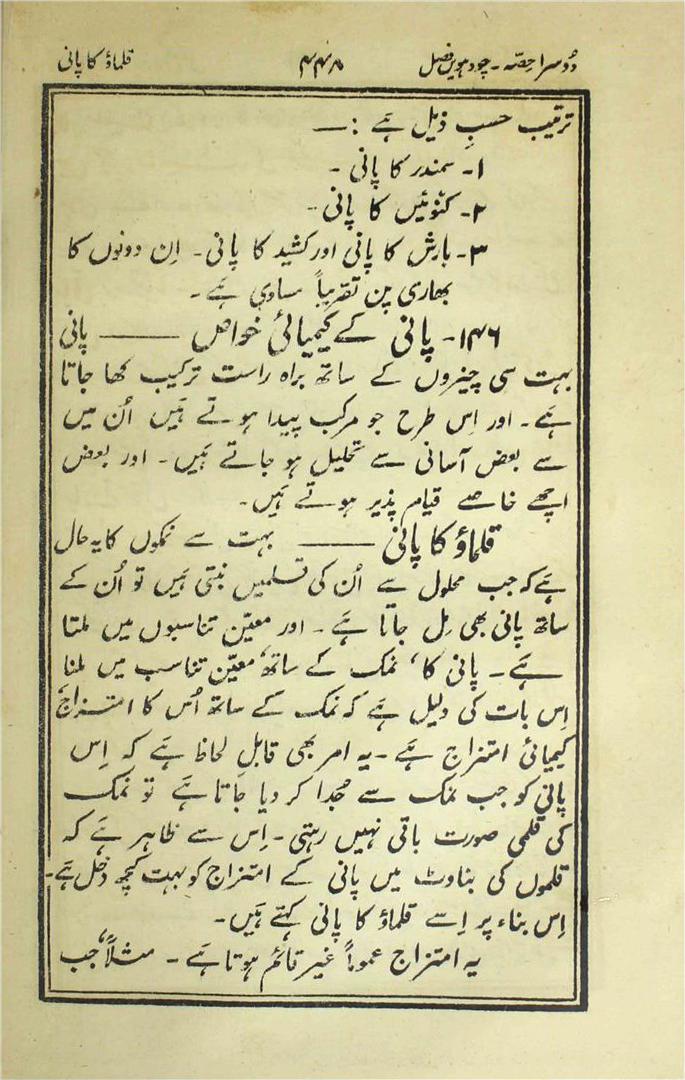 دُوسرا حِصّہ - چودہویں فصل ۴۴۸ قلماؤ کا پانی
ترتیب حسبِ ذیل ہَے :—
۱- سمندر کا پانی -
۲- کنوئیں کا پانی -
۳- بارش کا پانی اور کشید کا پانی - اِن دونوں کا
بھاری پن تقریباً مساوی ہَے -
۱۴۶- پانی کے کیمیائی خواص —— پانی
بہت سی چیزوں کے ساتھ براہ راست ترکیب کھا جاتا
ہَے - اور اِس طرح جو مرکب پیدا ہوتے ہَیں اُن میں
سے بعض آسانی سے تحلیل ہو جاتے ہَیں - اور بعض
اچھے خاصے قیام پذیر ہوتے ہَیں -
قلماؤ کا پانی —— بہت سے نمکوں کا یہ حال
ہَے کہ جب محلول سے اُن کی قلمیں بنتی ہَیں تو اُن کے
ساتھ پانی بھی مِل جاتا ہَے - اور معیّن تناسبوں میں ملتا
ہَے - پانی کا، نمک کے ساتھ، معیّن تناسب میں ملنا
اِس بات کی دلیل ہَے کہ نمک کے ساتھ اُس کا امتزاج،
کیمیائی امتزاج ہَے - یہ امر بھی قابلِ لحاظ ہَے کہ اِس
پانی کو جب نمک سے جُدا کر دیا جاتا ہَے تو نمک
کی قلمی صورت باقی نہیں رہتی - اِس سے ظاہر ہَے کہ
قلموں کی بناوٹ میں پانی کے امتزاج کو بہت کچھ دخل ہَے -
اِس بناء پر اِسے قلماؤ کا پانی کہتے ہَیں -
یہ امتزاج عموماً غیر قائم ہوتا ہَے - مثلاً، جب